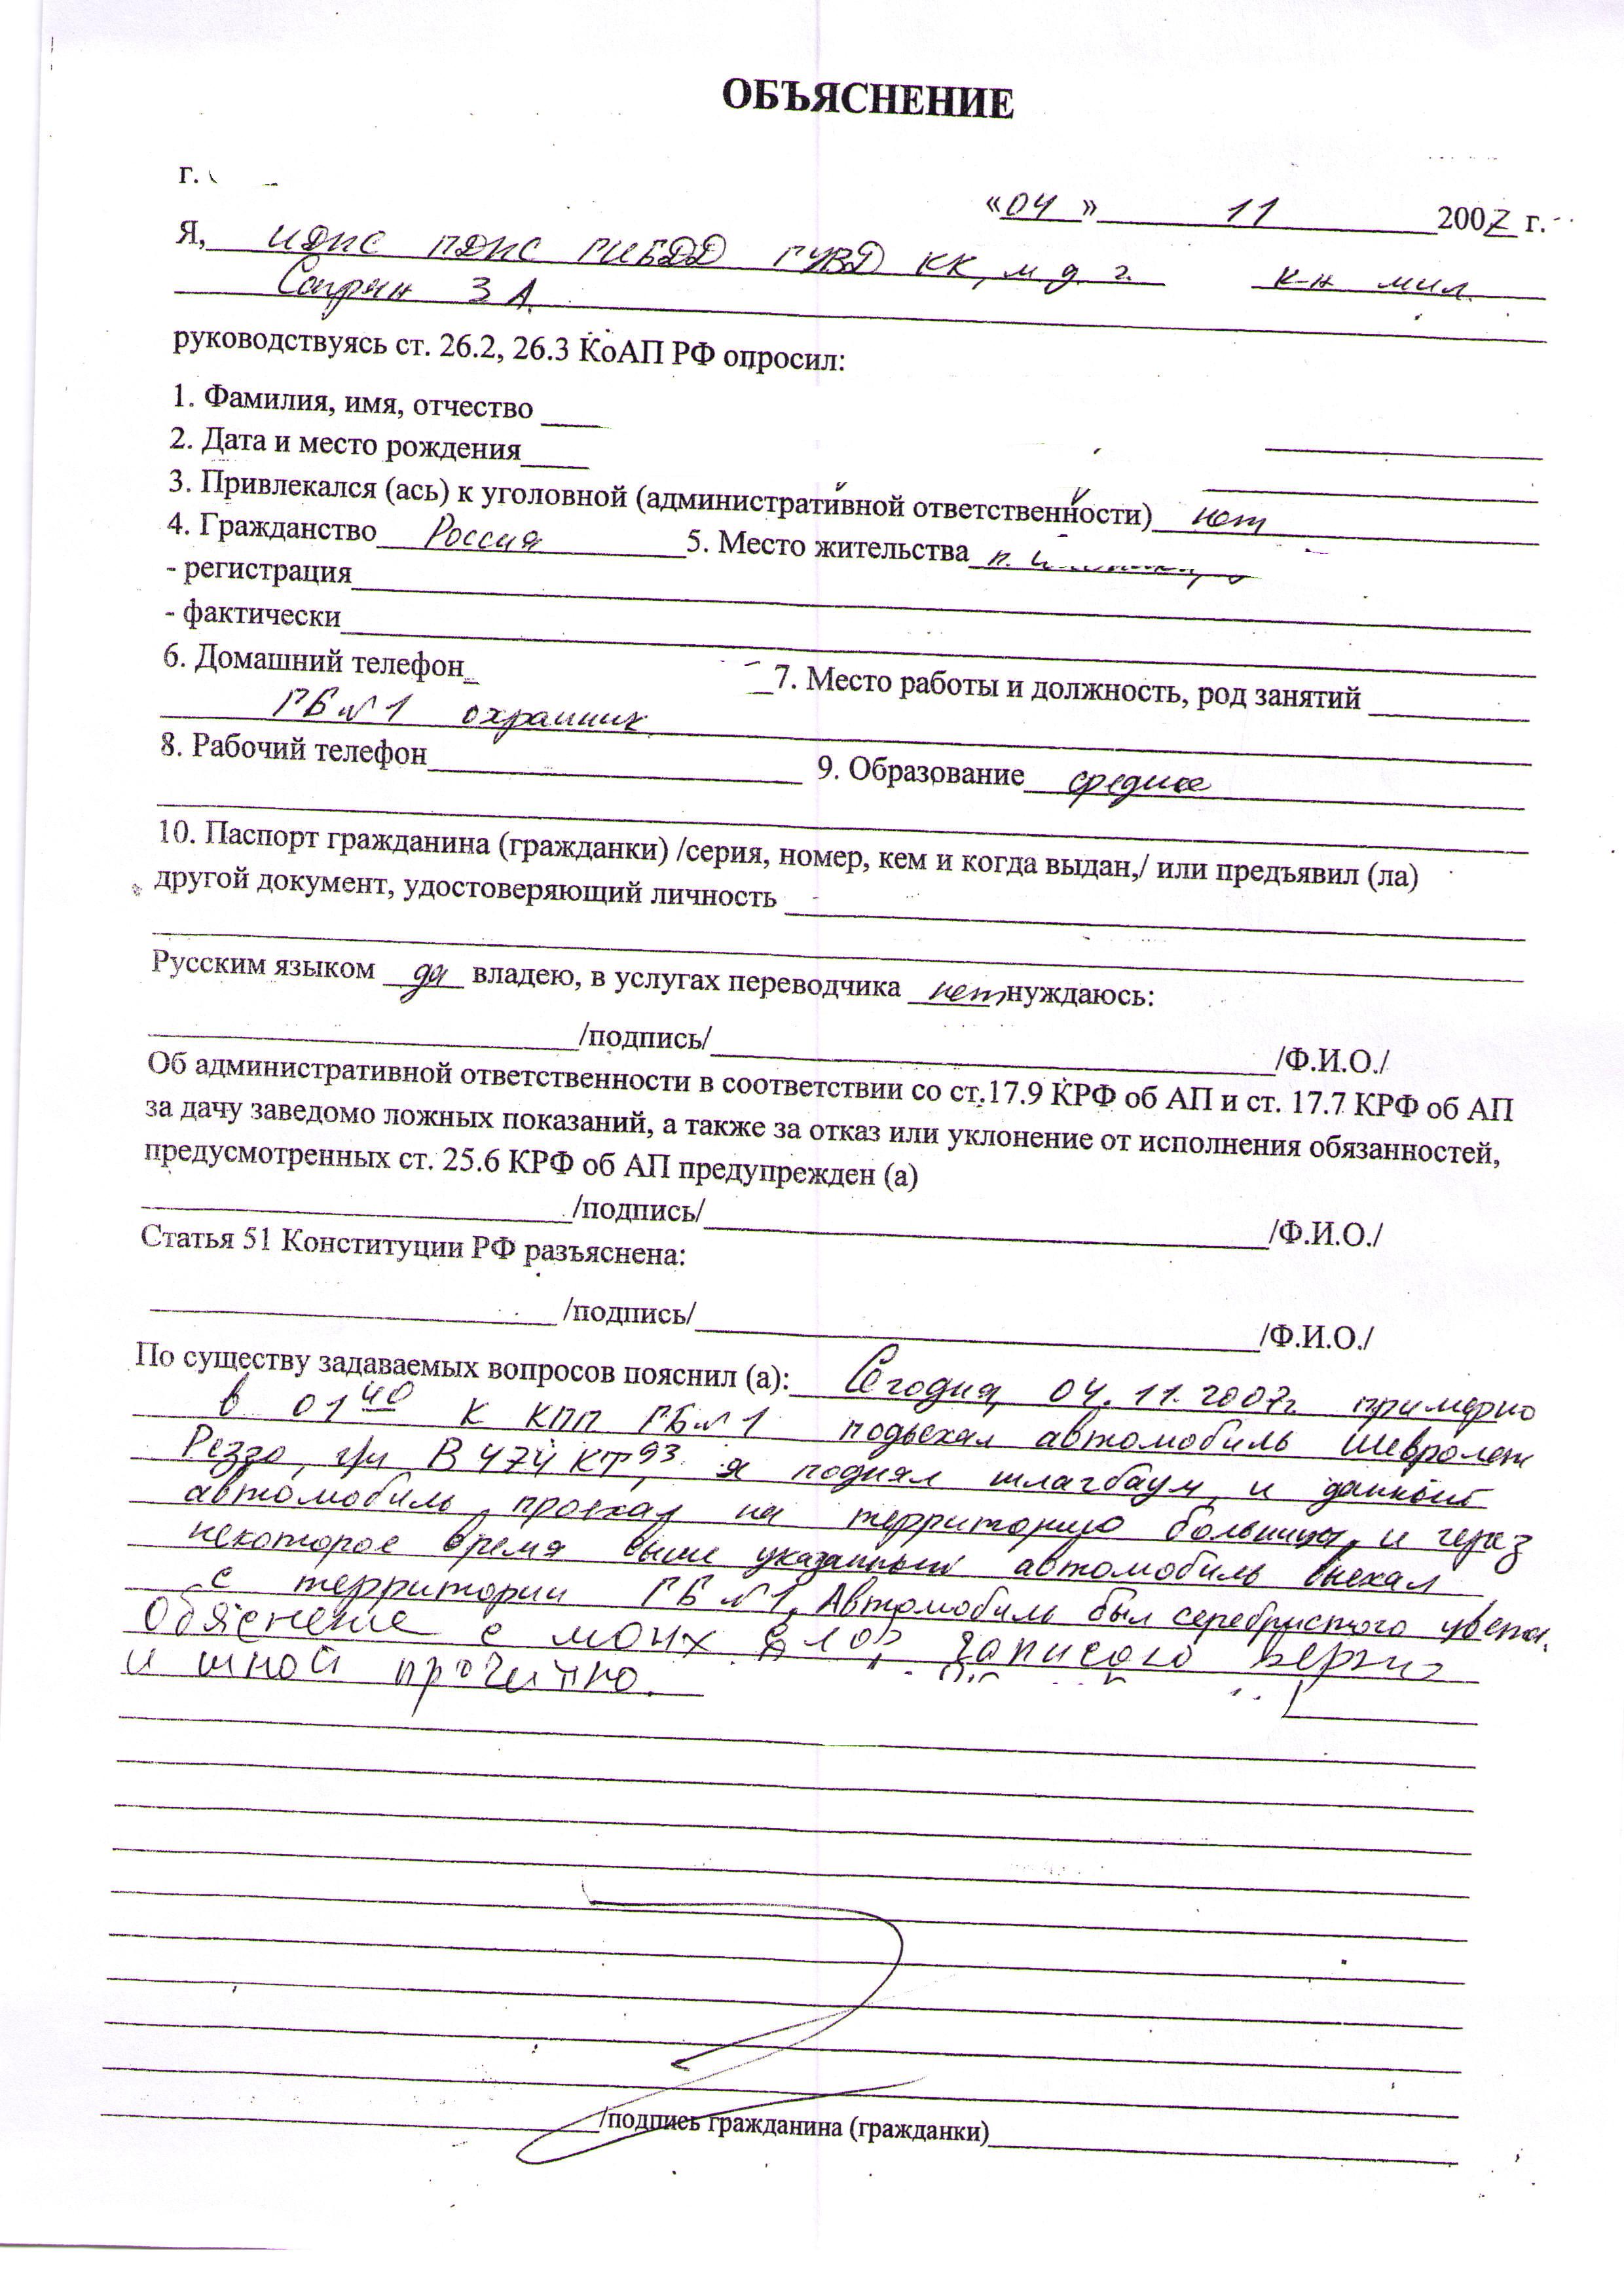 ОБЪЯСНЕНИЕ
г.
«04» 11 2007 г.
Я, ИДПС ПДПС ГИБДД ГУВД КК, м д г. к-н мил.
З А
руководствуясь ст. 26.2, 26.3 КоАП РФ опросил:
1. Фамилия, имя, отчество
2. Дата и место рождения
3. Привлекался (ась) к уголовной (административной ответственности) нет
4. Гражданство Россия 5. Место жительства п.
- регистрация
- фактически
6. Домашний телефон 7. Место работы и должность, род занятий
ГБ №1 охранник
8. Рабочий телефон 9. Образование среднее
10. Паспорт гражданина (гражданки) /серия, номер, кем и когда выдан,/ или предъявил (ла)
другой документ, удостоверяющий личность
Русским языком да владею, в услугах переводчика нет нуждаюсь:
/подпись/ /Ф.И.О./
Об административной ответственности в соответствии со ст.17.9 КРФ об АП и ст. 17.7 КРФ об АП
за дачу заведомо ложных показаний, а также за отказ или уклонение от исполнения обязанностей,
предусмотренных ст. 25.6 КРФ об АП предупрежден (а)
/подпись/ /Ф.И.О./
Статья 51 Конституции РФ разъяснена:
/подпись/ /Ф.И.О./
По существу задаваемых вопросов пояснил (а): Сегодня, 04.11.2007г. примерно
в 01 40 к КПП ГБ №1 подъехал автомобиль Шевролет
Реззо, г/н В 474 КТ 93, я поднял шлагбаум, и данный
автомобиль проехал на территорию больницы, и через
некоторое время выше указанный автомобиль выехал
с территории ГБ №1. Автомобиль был серебристого цвета.
Обяснение с моих слов записоно верно
и мной прочитно.
/подпись гражданина (гражданки)